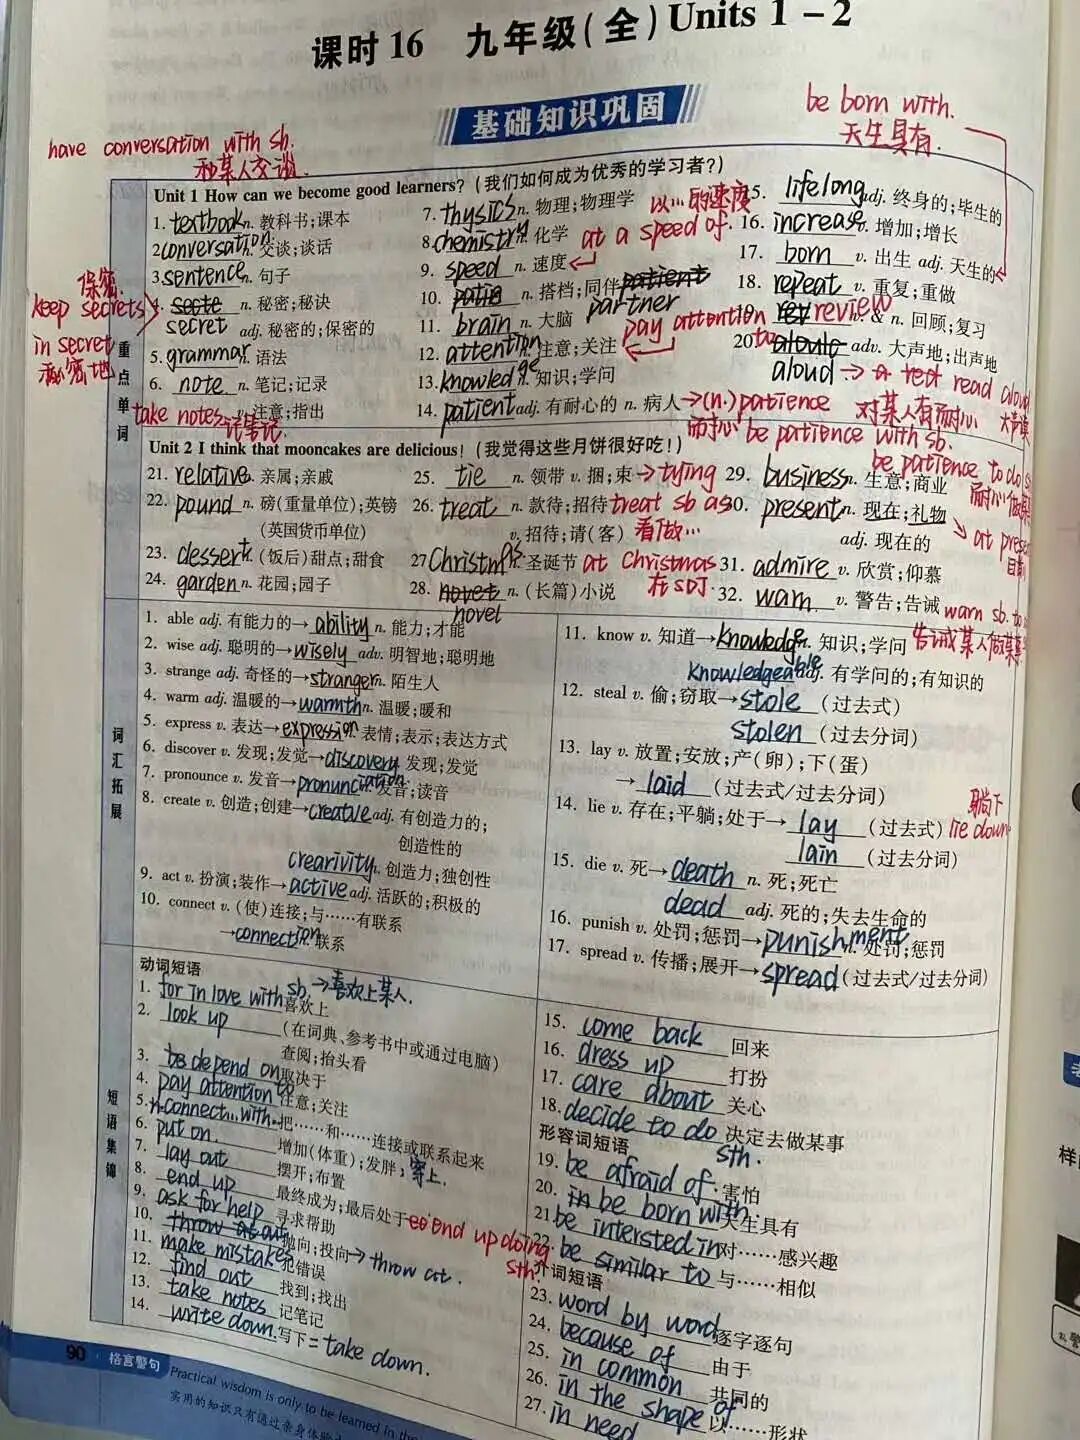 课时16 九年级(全)Units 1-2
基础知识巩固
be born with.
天生具有.
have conversation with sb.
和某人交谈.
Unit 1 How can we become good learners?(我们如何成为优秀的学习者?)
重点单词
1. textbook n. 教科书;课本
2. conversation n. 交谈;谈话
3. sentence n. 句子
4. n. 秘密;秘诀
secret adj. 秘密的;保密的
保密
keep secrets
in secret
秘密地
5. grammar n. 语法
6. note n. 笔记;记录
v. 注意;指出
take notes 记笔记.
7. thysics n. 物理;物理学
8. chemistry n. 化学
9. speed n. 速度
以…的速度
at a speed of.
10. patient n. 搭档;同伴
partner
11. brain n. 大脑
12. attention n. 注意;关注
pay attention to
13. knowledge n. 知识;学问
14. patient adj. 有耐心的 n. 病人→(n.)patience
耐心
15. lifelong adj. 终身的;毕生的
16. increase v. 增加;增长
17. born v. 出生 adj. 天生的
18. repeat v. 重复;重做
19. review v. & n. 回顾;复习
20. adv. 大声地;出声地
aloud → read aloud
大声读
对某人有耐心
be patience with sb.
be patience to do s
Unit 2 I think that mooncakes are delicious!(我觉得这些月饼很好吃!)
21. relative n. 亲属;亲戚
22. pound n. 磅(重量单位);英镑
(英国货币单位)
23. dessert n. (饭后)甜点;甜食
24. garden n. 花园;园子
25. tie n. 领带 v. 捆;束→tying
26. treat n. 款待;招待 treat sb as
v. 招待;请(客) 看做…
27. Christmas n. 圣诞节 at Christmas
28. novet n. (长篇)小说
novel
29. business n. 生意;商业
30. present n. 现在;礼物
adj. 现在的
→ at present
31. admire v. 欣赏;仰慕
32. warn v. 警告;告诫 warn sb. to
告诫某人做某事
词汇拓展
1. able adj. 有能力的→ability n. 能力;才能
2. wise adj. 聪明的→wisely adv. 明智地;聪明地
3. strange adj. 奇怪的→stranger n. 陌生人
4. warm adj. 温暖的→warmth n. 温暖;暖和
5. express v. 表达→expression n. 表情;表示;表达方式
6. discover v. 发现;发觉→discovery n. 发现;发觉
7. pronounce v. 发音→pronunciation n. 发音;读音
8. create v. 创造;创建→creative adj. 有创造力的;
创造性的
crearivity n. 创造力;独创性
9. act v. 扮演;装作→active adj. 活跃的;积极的
10. connect v. (使)连接;与……有联系
→connection n. 联系
11. know v. 知道→knowledge n. 知识;学问
knowledgeable adj. 有学问的;有知识的
12. steal v. 偷;窃取→stole (过去式)
stolen (过去分词)
13. lay v. 放置;安放;产(卵);下(蛋)
→laid (过去式/过去分词)
14. lie v. 存在;平躺;处于→lay (过去式)
lain (过去分词)
躺下
lie down
15. die v. 死→death n. 死;死亡
dead adj. 死的;失去生命的
16. punish v. 处罚;惩罚→punishment n. 处罚;惩罚
17. spread v. 传播;展开→spread (过去式/过去分词)
短语集锦
动词短语
1. for in love with sb.→喜欢上某人.
喜欢上
2. look up (在词典、参考书中或通过电脑)
查阅;抬头看
3. be depend on 取决于
4. pay attention to 注意;关注
5. connect...with. 把……和……连接或联系起来
6. put on. 增加(体重);发胖;穿上.
7. lay out 摆开;布置
8. end up 最终成为;最后处于 end up doing sth.
9. ask for help 寻求帮助
10. throw out 抛向;投向→throw at.
11. make mistakes 犯错误
12. find out 找到;找出
13. take notes 记笔记
14. write down. 写下=take down.
15. come back 回来
16. dress up 打扮
17. care about 关心
18. decide to do 决定去做某事
sth.
形容词短语
19. be afraid of. 害怕
20. be born with. 天生具有
21. be intersted in 对……感兴趣
22. be similar to 与……相似
介词短语
23. word by word 逐字逐句
24. because of 由于
25. in common 共同的
26. in the shape of 以……形状
27. in need
90 格言警句
Practical wisdom is only to be learned in the
实用的知识只有通过亲身体验